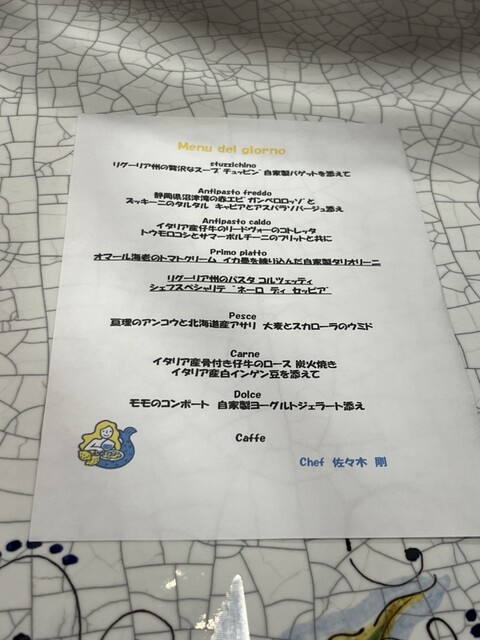 Menu del giorno
stuzzichino
リグーリア州の贅沢なスープ "チュッピン" 自家製バゲットを添えて
Antipasto freddo
静岡県沼津湾の赤エビ "ガンベロロッソ" と
ズッキーニのタルタル キャビアとアスパラソバージュ添え
Antipasto caldo
イタリア産仔牛のリードヴォーのコトレッタ
トウモロコシとサマーポルチーニのフリットと共に
Primo piatto
オマール海老のトマトクリーム イカ墨を練り込んだ自家製タリオリーニ
リグーリア州のパスタ コルツェッティ
シェフスペシャリテ "ネーロ ディ セッピア"
Pesce
亘理のアンコウと北海道産アサリ 大麦とスカローラのウミド
Carne
イタリア産骨付き仔牛のロース 炭火焼き
イタリア産白インゲン豆を添えて
Dolce
モモのコンポート 自家製ヨーグルトジェラート添え
Caffe
Chef 佐々木 剛